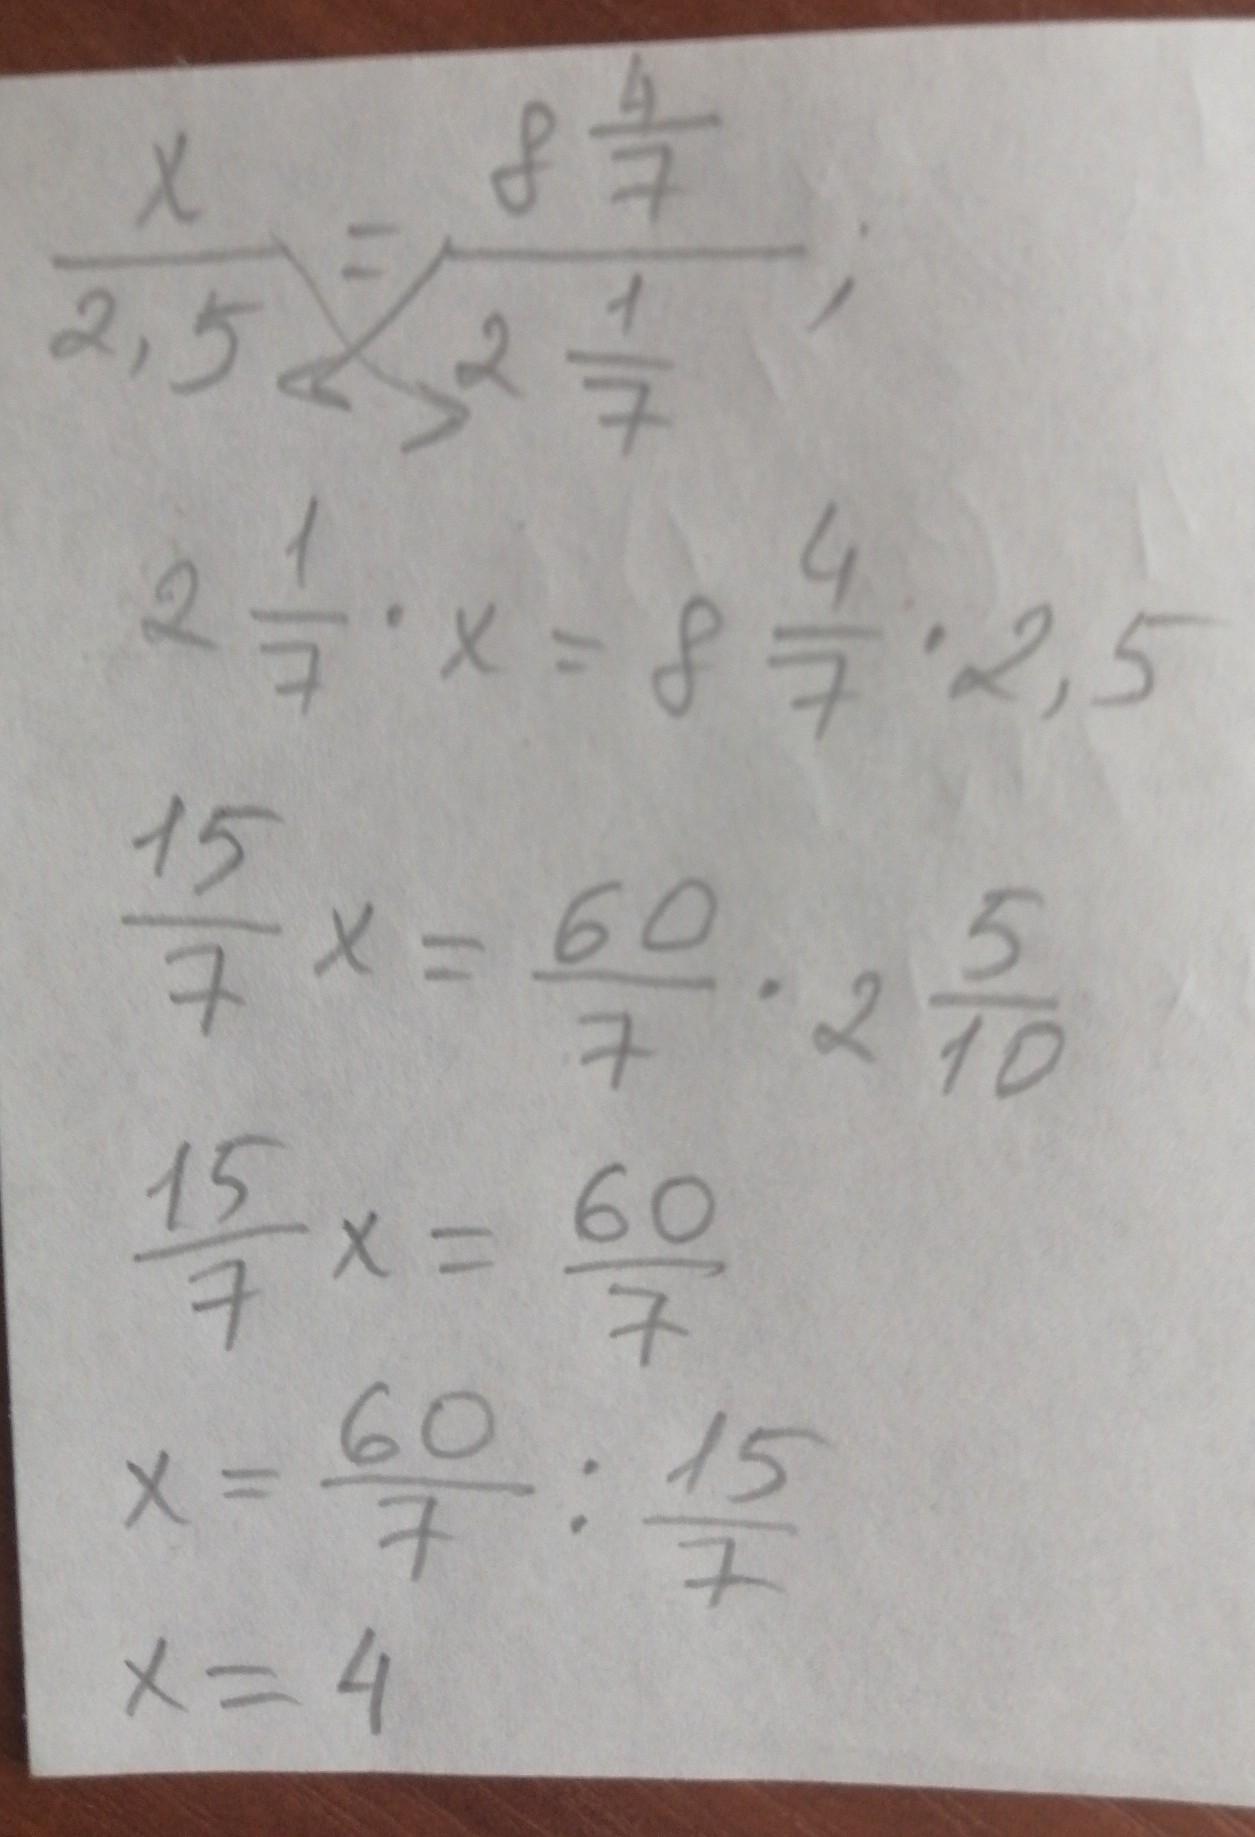 x/2,5 = 8 4/7 / 2 1/7 ;
2 1/7 · x = 8 4/7 · 2,5
15/7 x = 60/7 · 2 5/10
15/7 x = 60/7
x = 60/7 : 15/7
x = 4